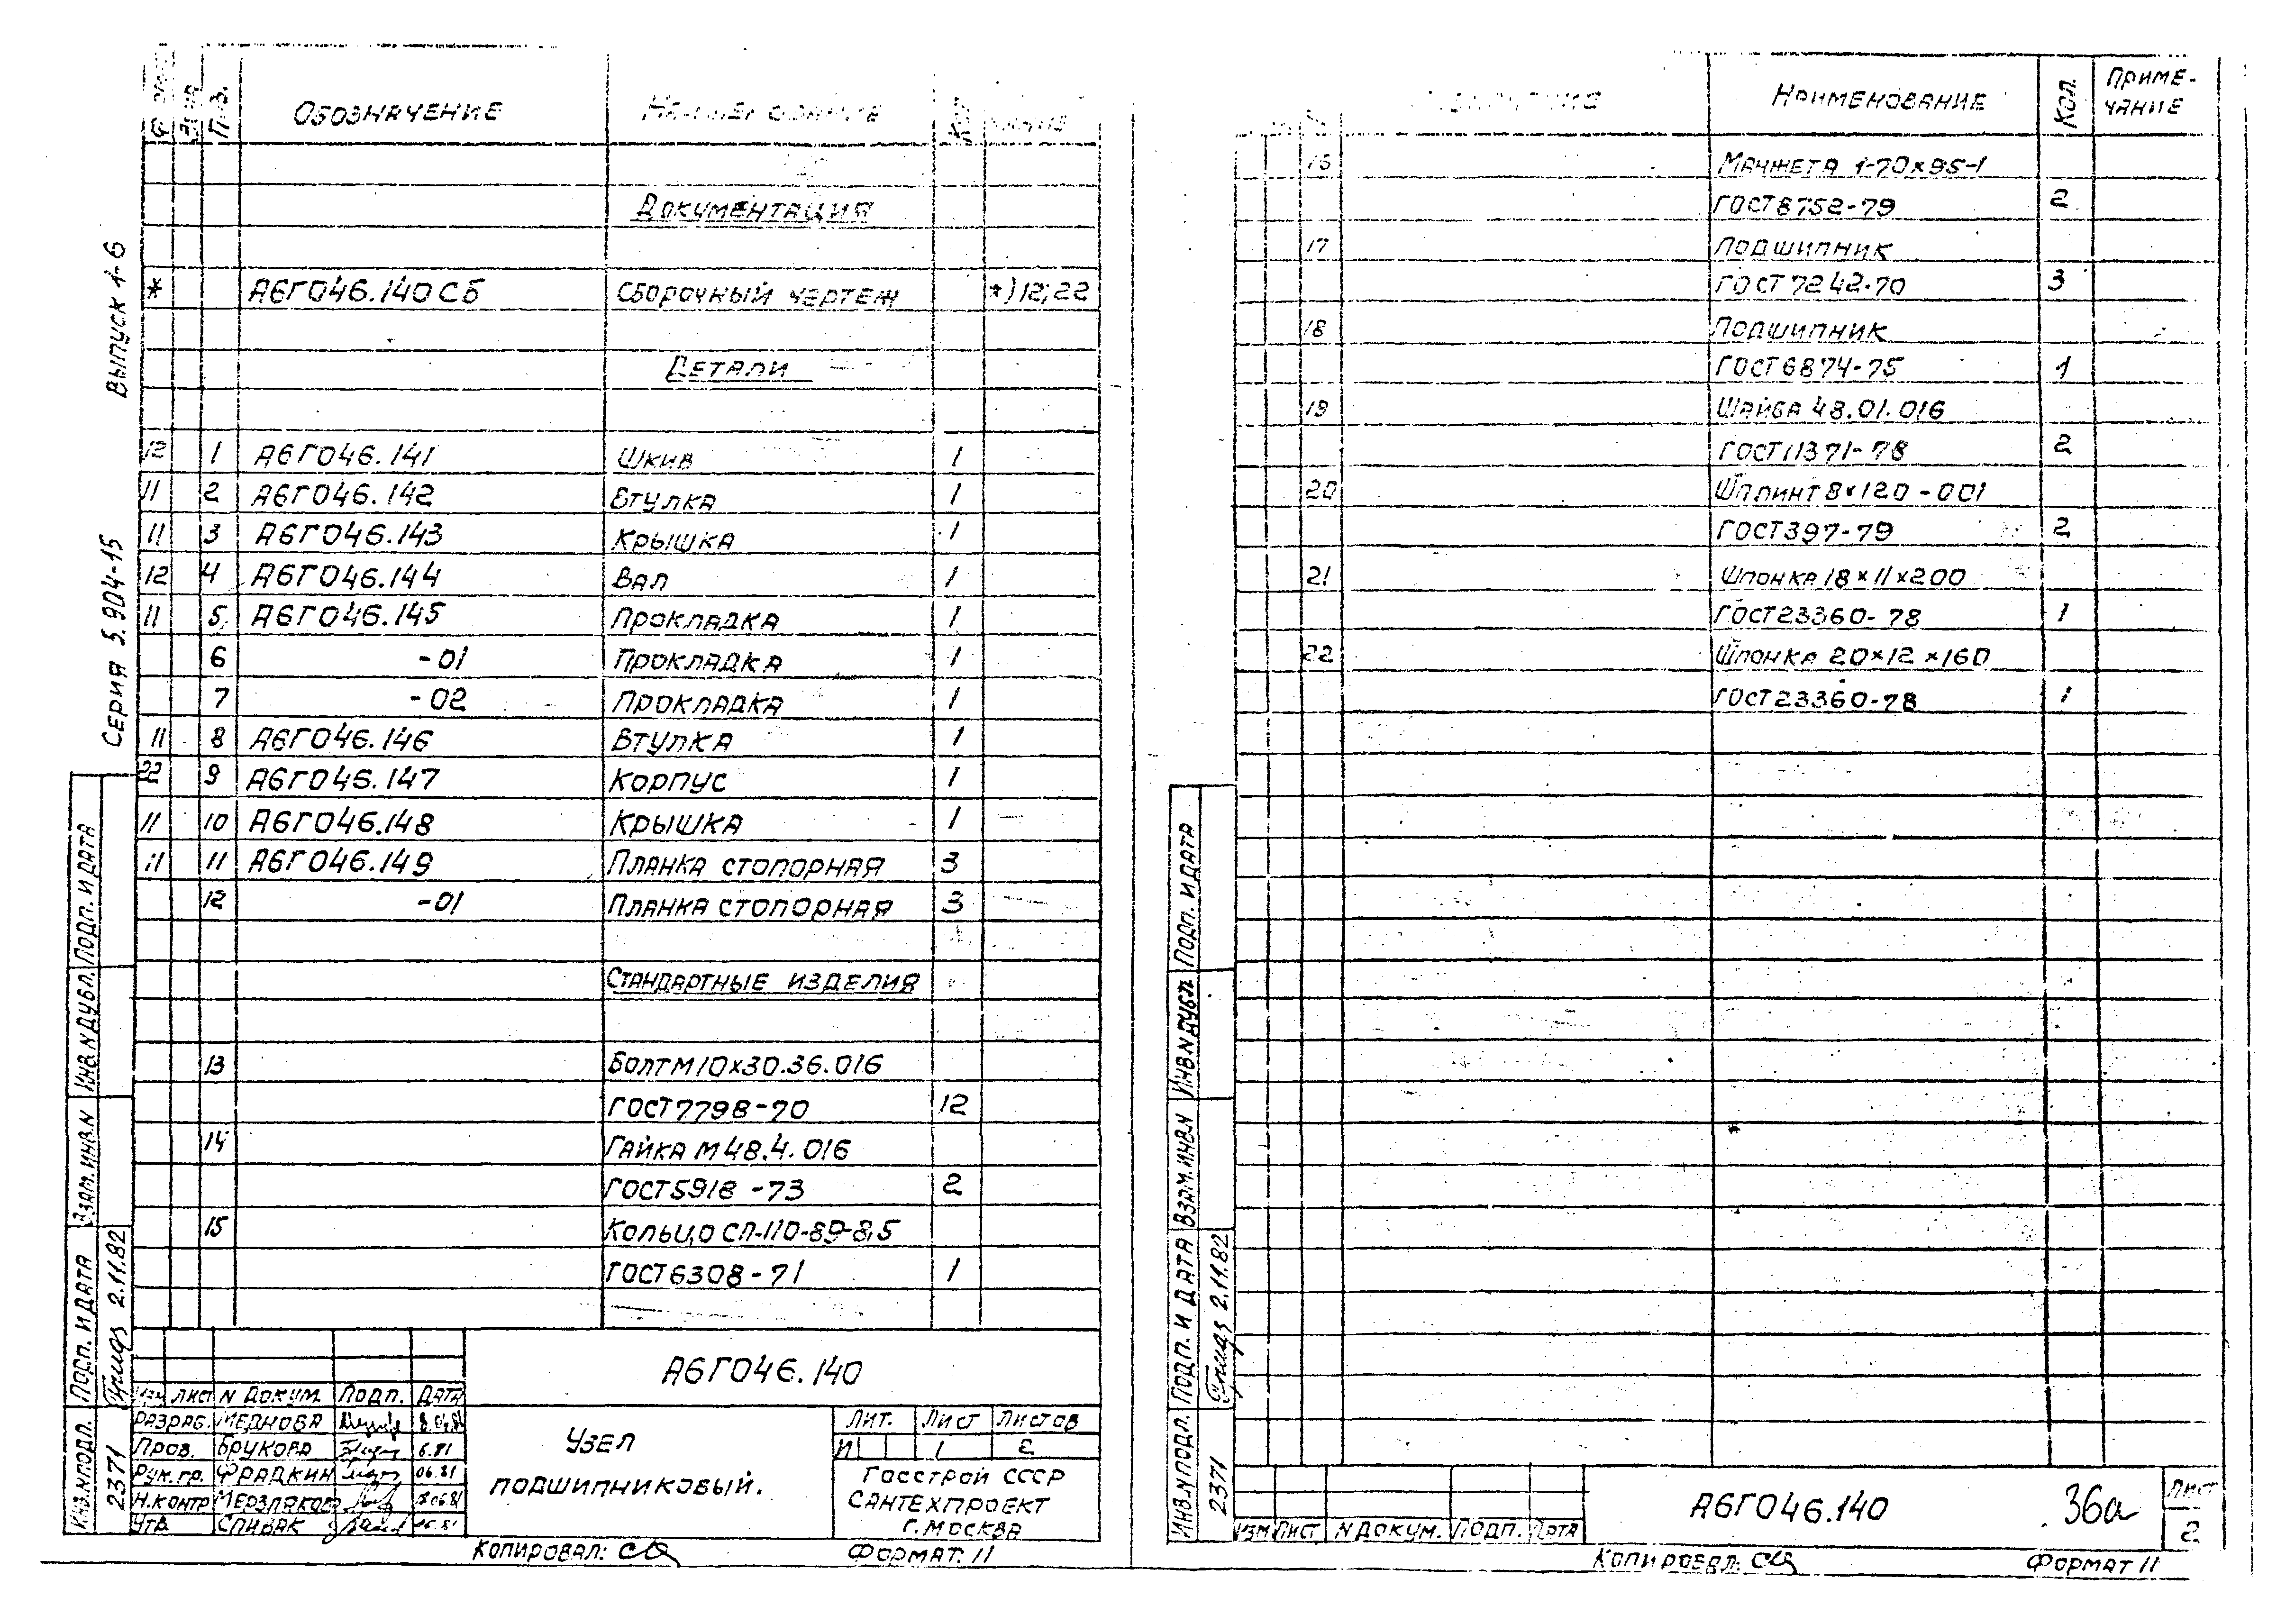 Серия 5.904-15 Выпуск 1-6
Поз. Обозначение Наименование
Документация
* А6Г046.140 СБ Сборочный чертеж *) 12; 22
Детали
12 1 А6Г046.141 Шкив 1
11 2 А6Г046.142 Втулка 1
11 3 А6Г046.143 Крышка 1
12 4 А6Г046.144 Вал 1
11 5 А6Г046.145 Прокладка 1
6 -01 Прокладка 1
7 -02 Прокладка 1
11 8 А6Г046.146 Втулка 1
22 9 А6Г046.147 Корпус 1
11 10 А6Г046.148 Крышка 1
11 11 А6Г046.149 Планка стопорная 3
12 -01 Планка стопорная 3
Стандартные изделия
13 Болт М10×30.36.016
ГОСТ 7798-70 12
14 Гайка М48.4.016
ГОСТ 5918-73 2
15 Кольцо СП-110-89-8,5
ГОСТ 6308-71 1
Инв.N подл. Подп. и дата Взам.инв.N Инв.N дубл. Подп. и дата
2371 2.11.82
А6Г046.140
Изм Лист N докум. Подп. Дата
Разраб. Меднова
Пров. Брукова 6.81
Рук.гр. Фрадкин 06.81
Н.контр Мерзлякова
Утв. Спивак
Узел
подшипниковый.
Лит. Лист Листов
И 1 2
Госстрой СССР
Сантехпроект
г. Москва
Копировал: Формат: 11
Наименование Кол. Приме-
чание
16 Манжета 1-70×95-1
ГОСТ 8752-79 2
17 Подшипник
ГОСТ 7242-70 3
18 Подшипник
ГОСТ 6874-75 1
19 Шайба 48.01.016
ГОСТ 11371-78 2
20 Шплинт 8×120-001
ГОСТ 397-79 2
21 Шпонка 18×11×200
ГОСТ 23360-78 1
22 Шпонка 20×12×160
ГОСТ 23360-78 1
Инв.N подл. Подп. и дата Взам.инв.N Инв.N дубл. Подп. и дата
2371 2.11.82
Изм Лист N докум. Подп. Дата
А6Г046.140 36а
Лист
2
Копировал: Формат 11